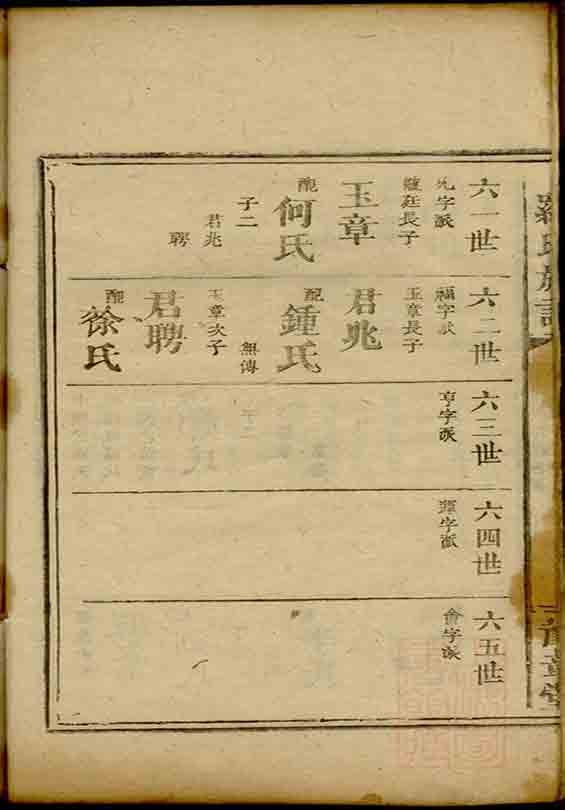 羅氏族譜
六一世
九字派
玉章
配
何氏
子二
君兆
聘
六二世
福字派
玉章長子
君兆
配
鍾氏
無傳
玉章次子
君聘
配
徐氏
六三世
亨字派
六四世
六五世
會字派